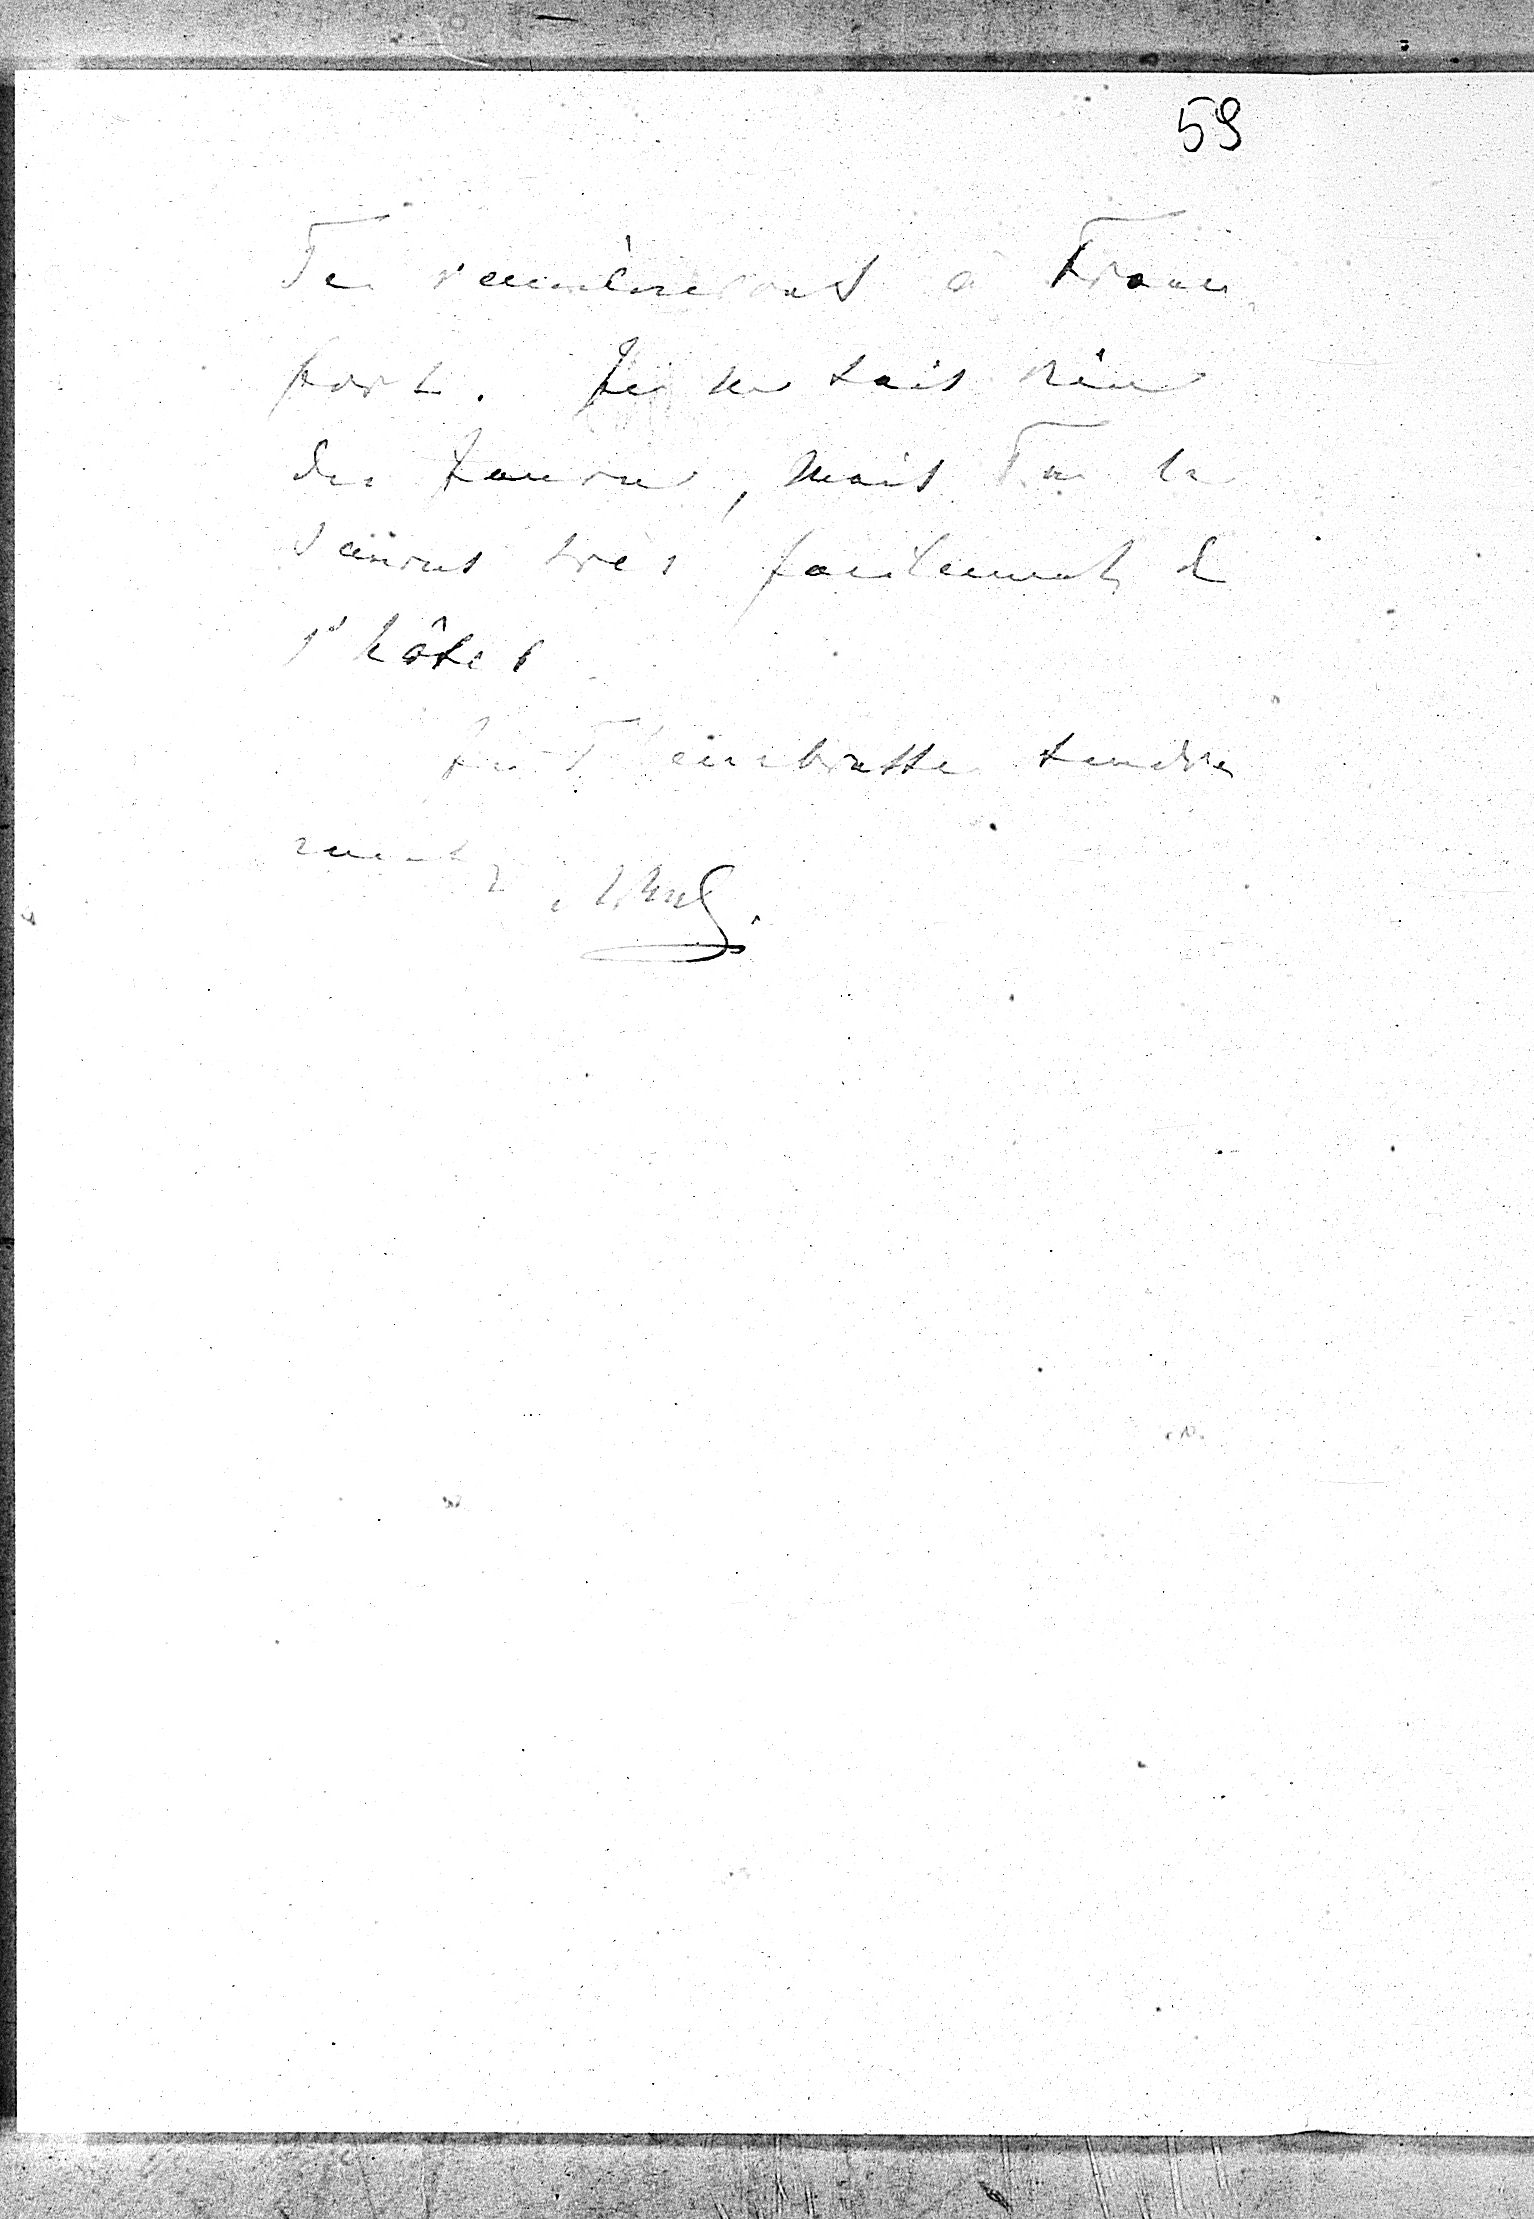 59
Te ramèneront à Franc
fort. Je ne sais rien
de Laura, mais Tu le
sauras très facilement de
l'hôtel
Je T'embrasse tendre
ment